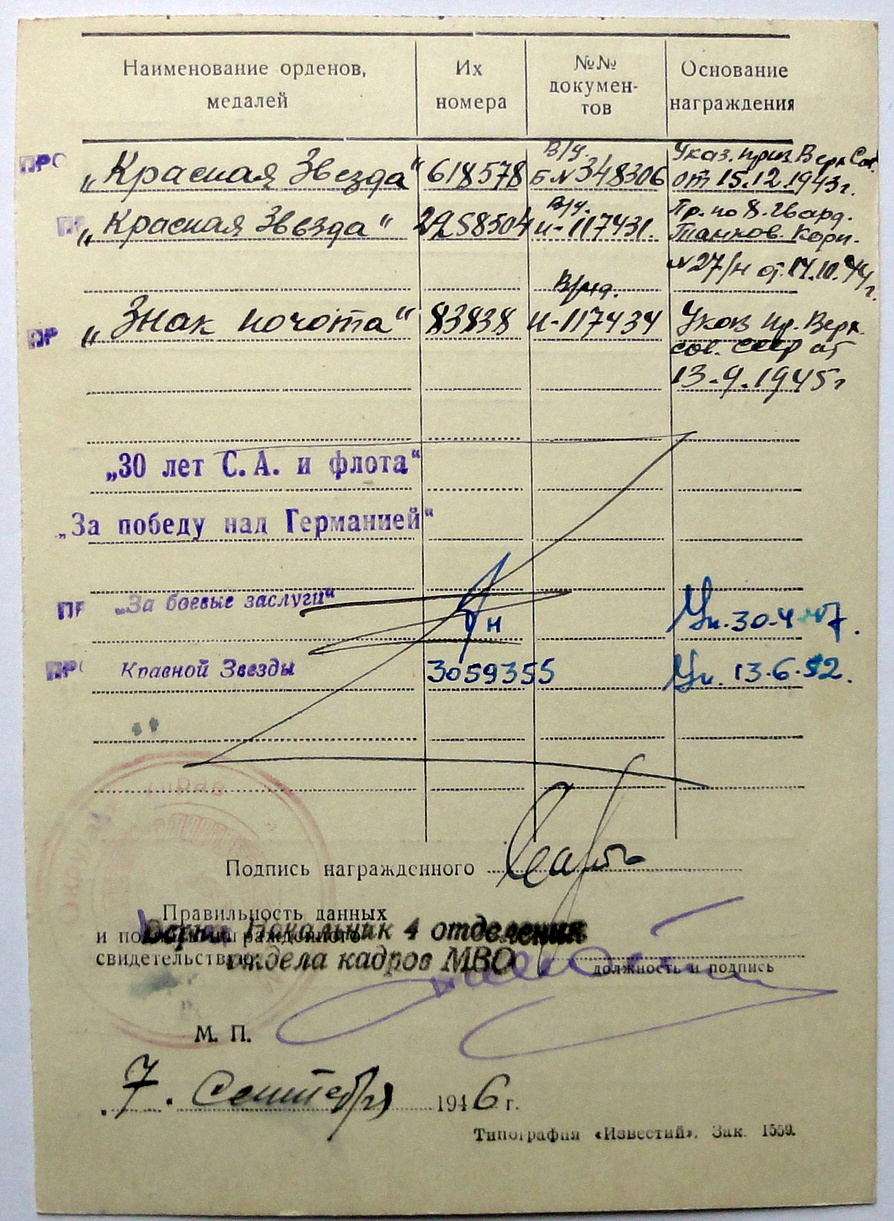 Наименование орденов, медалей
Их номера
№№ документов
Основание награждения
ПРО „Красная Звезда“ 618578 В/у. Б №348306 Указ. през. Верх Сов. от 15.12.1943г.
„Красная Звезда“ В/уч. и-117431. Пр. по 8. Гвард. Танков. Корп.
№27/н от 14.10.44г.
ПР „Знак почота“ 83838 И-117434 Указ Пр. Верх.
сов. ссср от
13.9.1945г
„30 лет С. А. и флота“
„За победу над Германией“
ПР „За боевые заслуги“ Ук. 30.4.47.
ПРО Кравной Звезды 3059355 Ук. 13.6.52.
Подпись награжденного
Правильность данных
и награжденного Начальник 4 отделения
свидетельствую: отдела кадров МВО
должность и подпись
М. П.
7. Сентября 1946 г.
Типография «Известий». Зак. 1559.